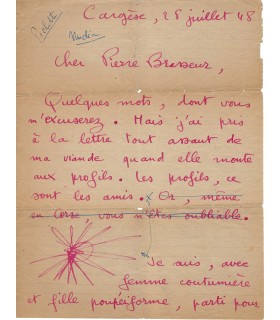 Cargèse, 28 juillet 48
Cher Pierre Brasseur,
Quelques mots, dont vous
m'excuserez. Mais j'ai pris
à la lettre tout assaut de
ma viande quand elle monte
aux profils. Les profils, ce
sont les amis. x Or, même
en Corse, vous n'êtes oubliable.
Je suis, avec
femme coutumière
et fille poupéiforme, parti pour